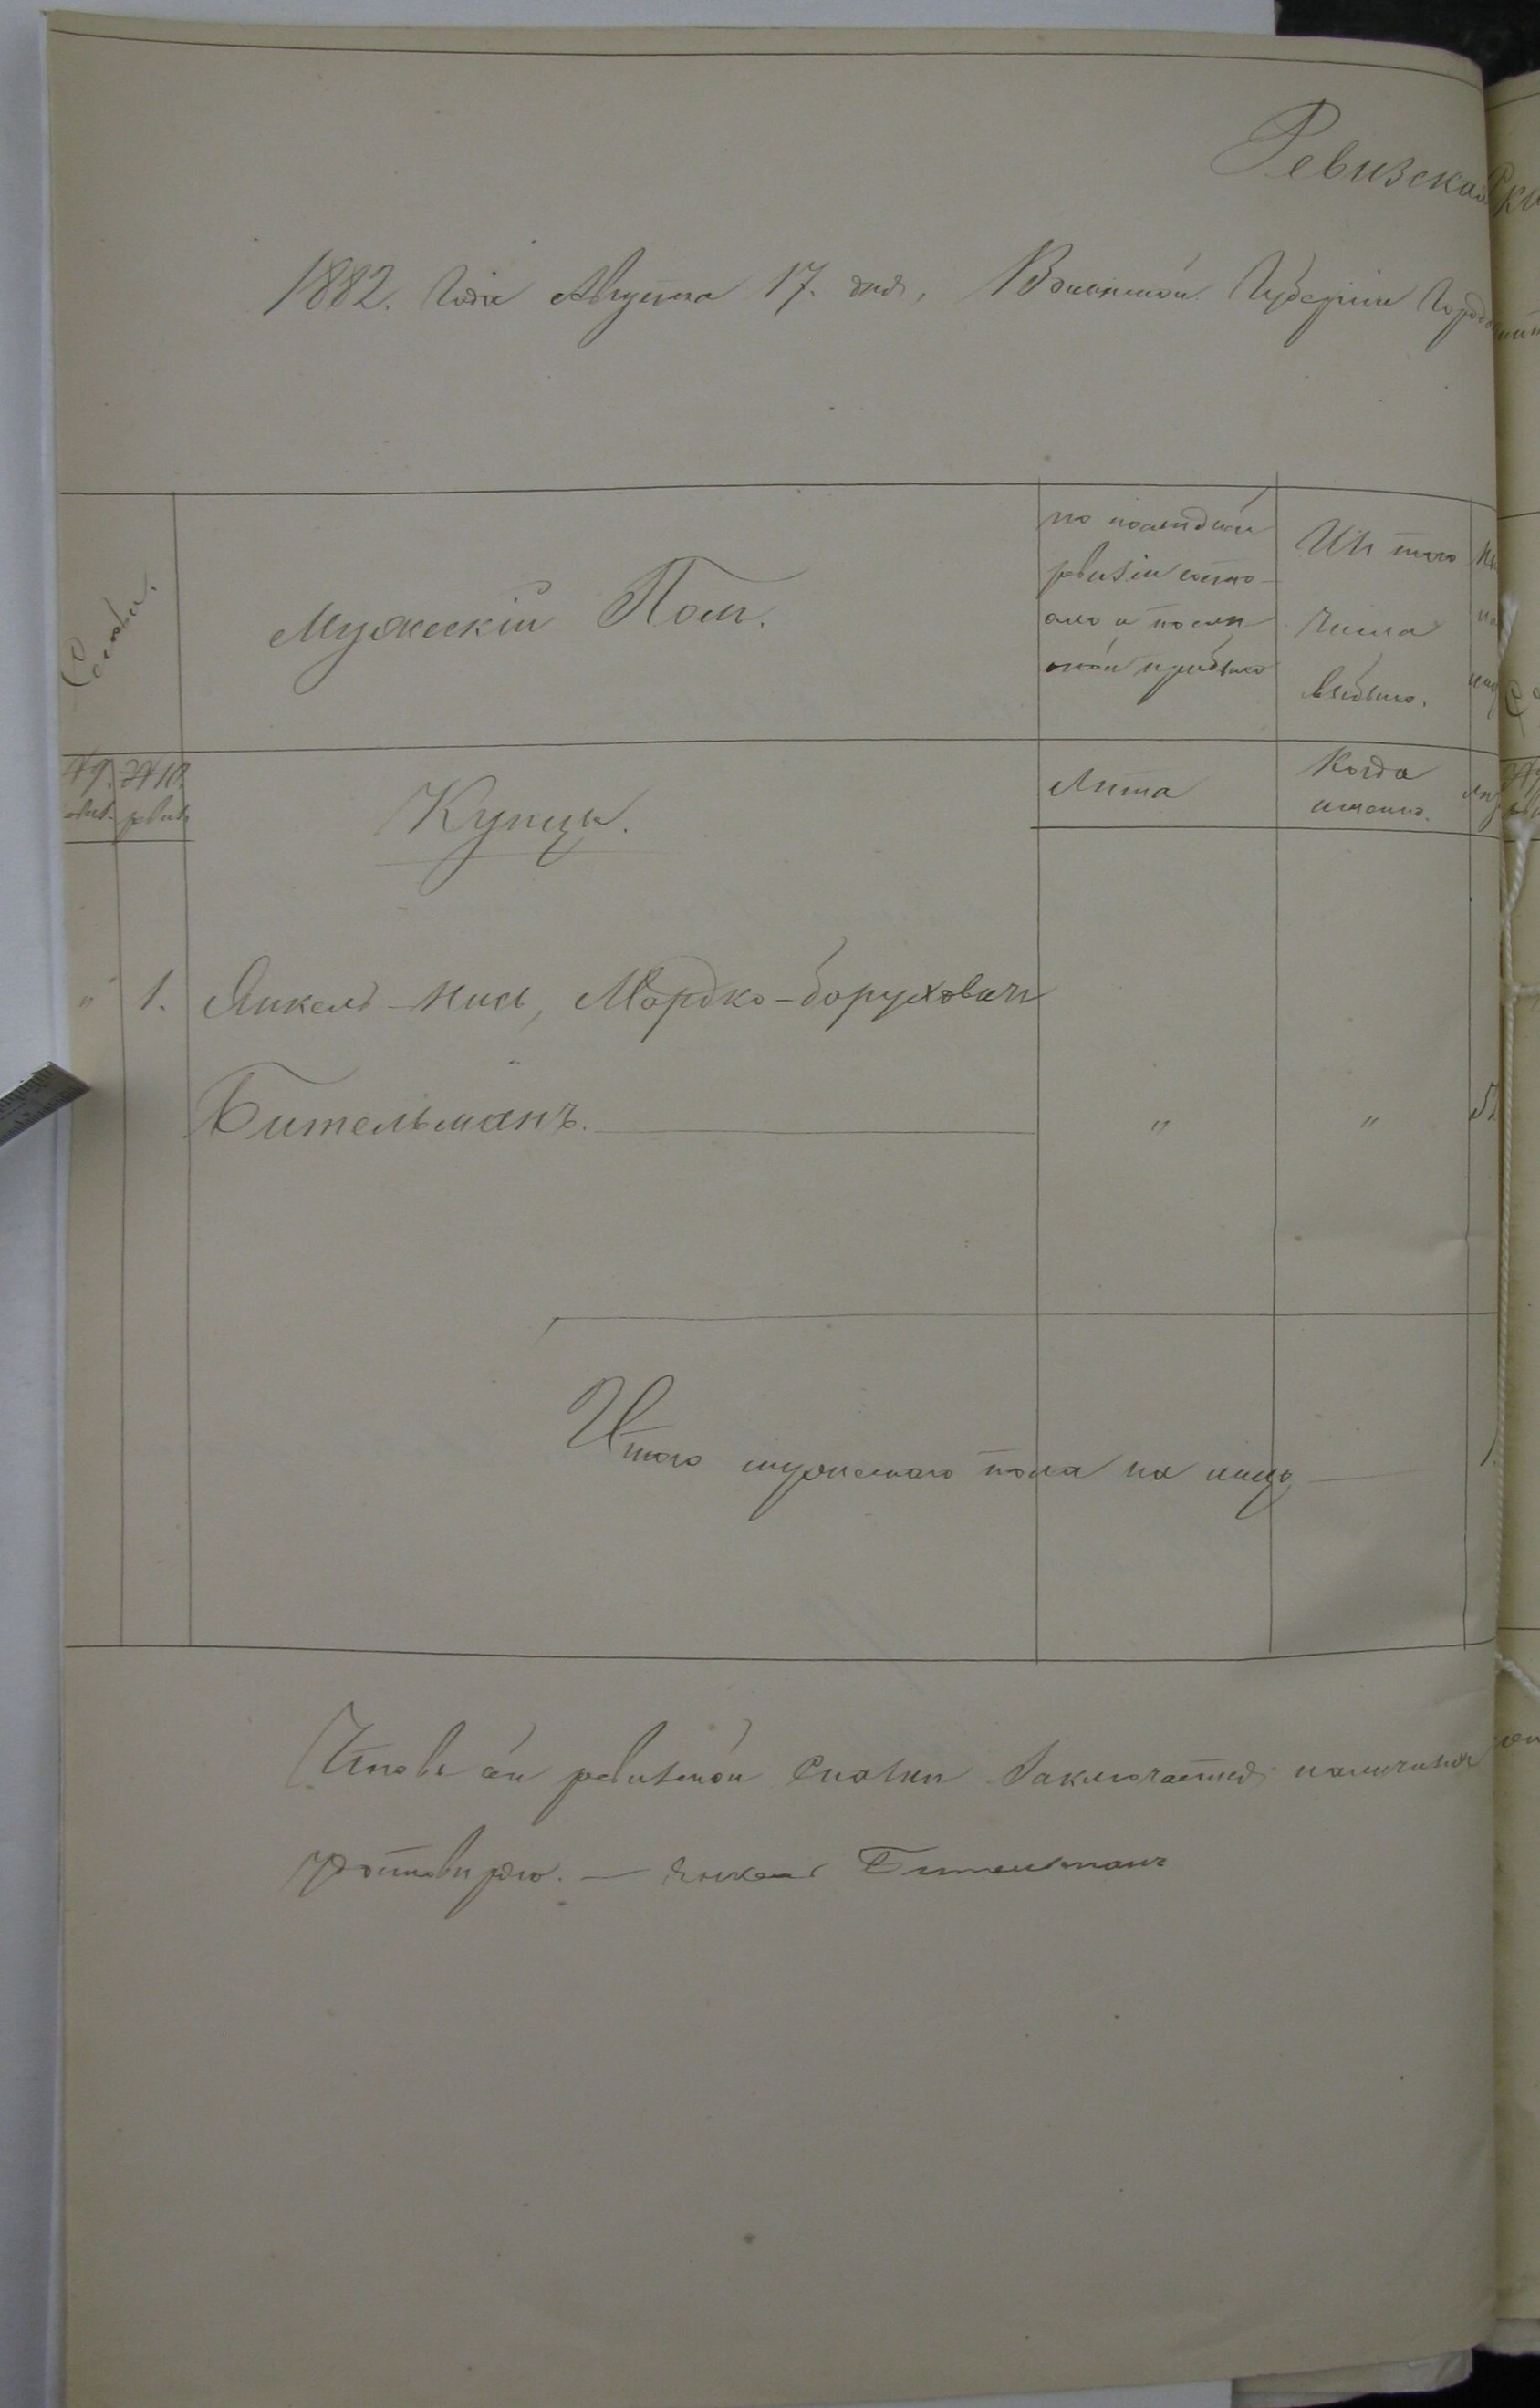 Ревизская
1882. Года Августа 17. дня, Волынской Губерніи Город
Семьи.
Мужескій Полъ.
по последней
ревизіи состо-
яло и после
оной прибыло
Изъ того
числа
выбыло.
№ 9. № 10.
ревиз. ревиз.
Купцы.
Лѣта
Когда
именно.
" 1. Янкель-Нись, Мордко-Боруховичъ
Бительманъ. " "
Итого мужескаго пола на лицо 1.
Что въ сей ревизской сказки заключается наличная
удостовѣряю. — Янкель Бительманъ